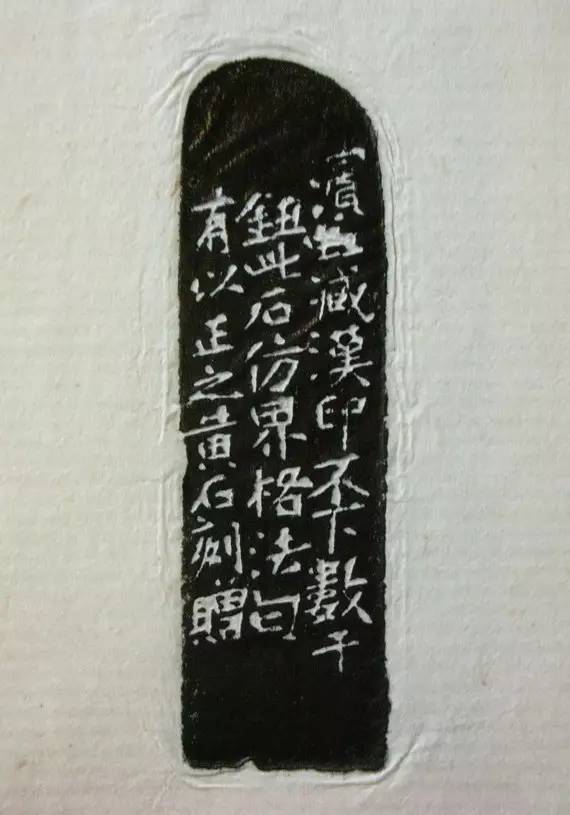 濱虹藏漢印不下數千
鈕此石仿界格法
有以正之黃石刻贈